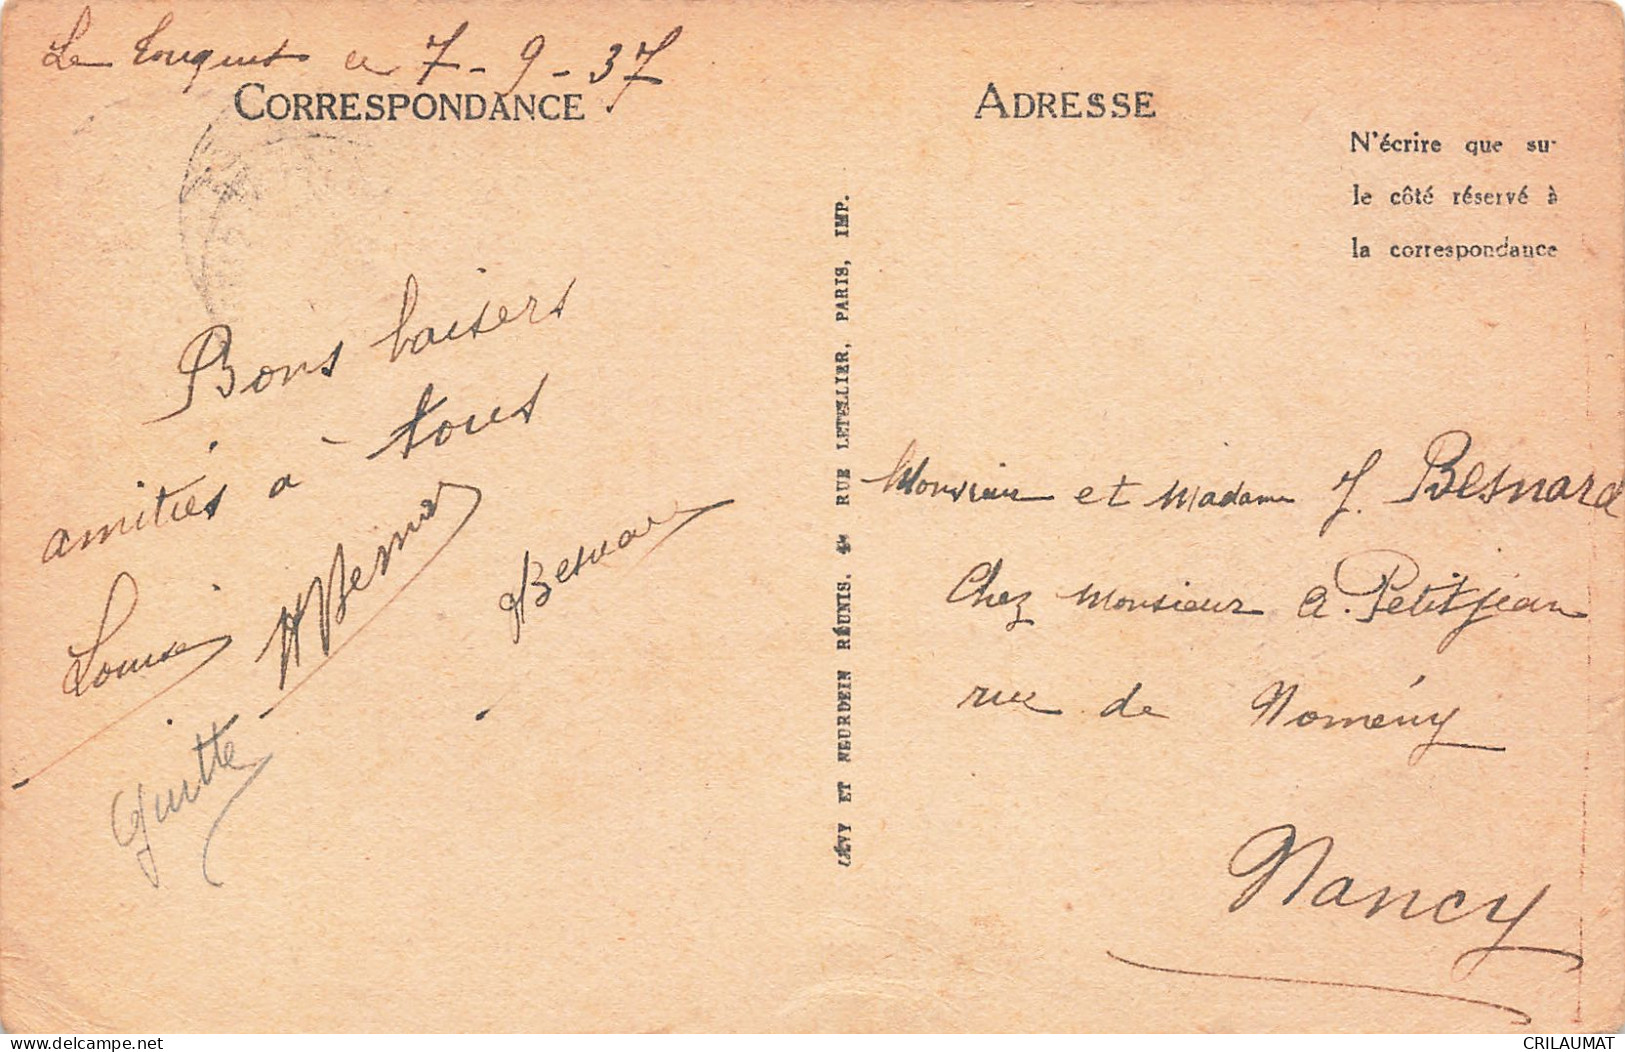 Le Touquet ce 7-9-37
CORRESPONDANCE
Bons baisers
amitiés à tous
Louise
HBesnard
ABesnard
Guitte
LÉVY ET NEURDEIN RÉUNIS, 44 RUE LETELLIER, PARIS, IMP.
ADRESSE
N'écrire que su
le côté réservé à
la correspondance
Monsieur et Madame J. Besnard
Chez Monsieur A. Petitjean
rue de Nomény
Nancy
delcampe.net
CRILAUMAT